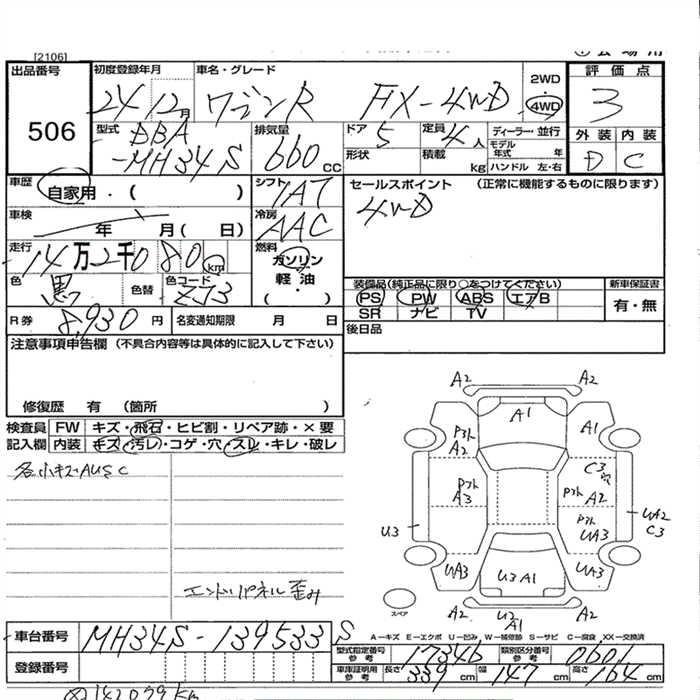 [2106]
出品番号 初度登録年月 車名・グレード 2WD 評価点
506 24 12月 ワゴンR FX-4WD 4WD 3
型式 DBA 排気量 ドア 5 定員 4人 ディーラー・並行 外装 内装
-MH34S 660cc 形状 積載 kg モデル年式 年 ハンドル 左・右 D C
車歴 自家用・( ) シフト IAT セールスポイント (正常に機能するものに限ります)
車検 年 月( 日) 冷房 AAC 4WD
走行 14万2千080km 燃料 ガソリン
軽油
( ・ )
色 黒 色替 色コード ZJ3 装備品(純正品に限り○をつけてください) 新車保証書
PS PW ABS エアB 有・無
SR ナビ TV
R券 8,930円 名変通知期限 月 日 後日品
注意事項申告欄 (不具合内容等は具体的に記入して下さい)
修復歴 有 (箇所 )
検査員 FW キズ・飛石・ヒビ割・リペア跡・×要
記入欄 内装 キズ・汚レ・コゲ・穴・スレ・キレ・破レ
各小キズAUSC
エンドパネル歪み
A2 A2
A1
A1
A2
C3
穴
A3
A2
U3
UA2
C3
UA3
UA3
U3A1
UA3
A2 U2 A2
A1
スペア
A-キズ E-エクボ U-凹み W-補修跡 S-サビ C-腐食 XX-交換済
車台番号 MH34S-139533 S
型式指定番号 参考 17346 類別区分番号 参考 0601
登録番号 車庫証明用 参考 長さ 339cm 幅 147cm 高さ 164cm
142079km